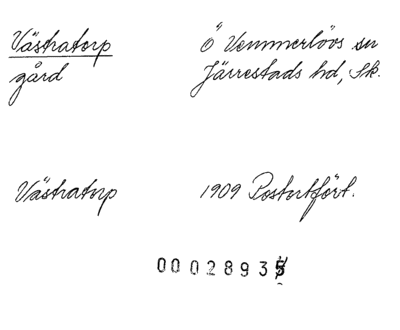 Västratorp Ö Vemmerlövs sn
gård Järrestads hd, Sk.
Västratorp 1909 Postortfört.
00028935